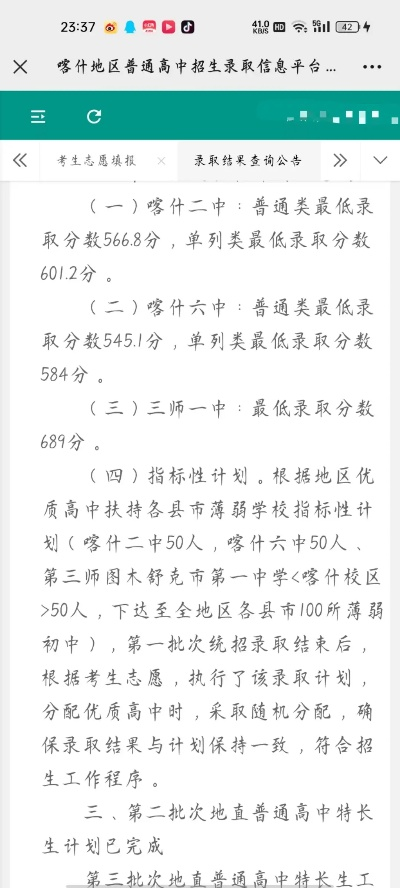 23:37
41.0 KB/S HD 5G 42
喀什地区普通高中招生录取信息平台...
考生志愿填报 × 录取结果查询公告
（一）喀什二中：普通类最低录
取分数566.8分，单列类最低录取分数
601.2分。
（二）喀什六中：普通类最低录
取分数545.1分，单列类最低录取分数
584分。
（三）三师一中：最低录取分数
689分。
（四）指标性计划。根据地区优
质高中扶持各县市薄弱学校指标性计
划（喀什二中50人，喀什六中50人、
第三师图木舒克市第一中学<喀什校区
>50人，下达至全地区各县市100所薄弱
初中），第一批次统招录取结束后，
根据考生志愿，执行了该录取计划，
分配优质高中时，采取随机分配，确
保录取结果与计划保持一致，符合招
生工作程序。
三、第二批次地直普通高中特长
生计划已完成
第三批次地直普通高中特长生工